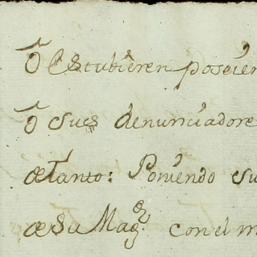 õ Estubieren poseien
õ sues denunciadore
atanto: Poniendo su
a Su Mag.ᵈ con el m